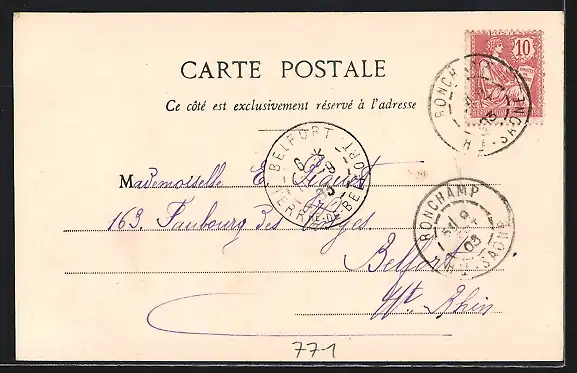 10
RONCHAMP
HTE-SAÔNE
03
CARTE POSTALE
Ce côté est exclusivement réservé à l'adresse
BELFORT
TERRRE-DE-BELFORT
RONCHAMP
03
HTE-SAÔNE
Mademoiselle E. Piquet
163, Faubourg des Vosges
Belfort
Ht Rhin
771